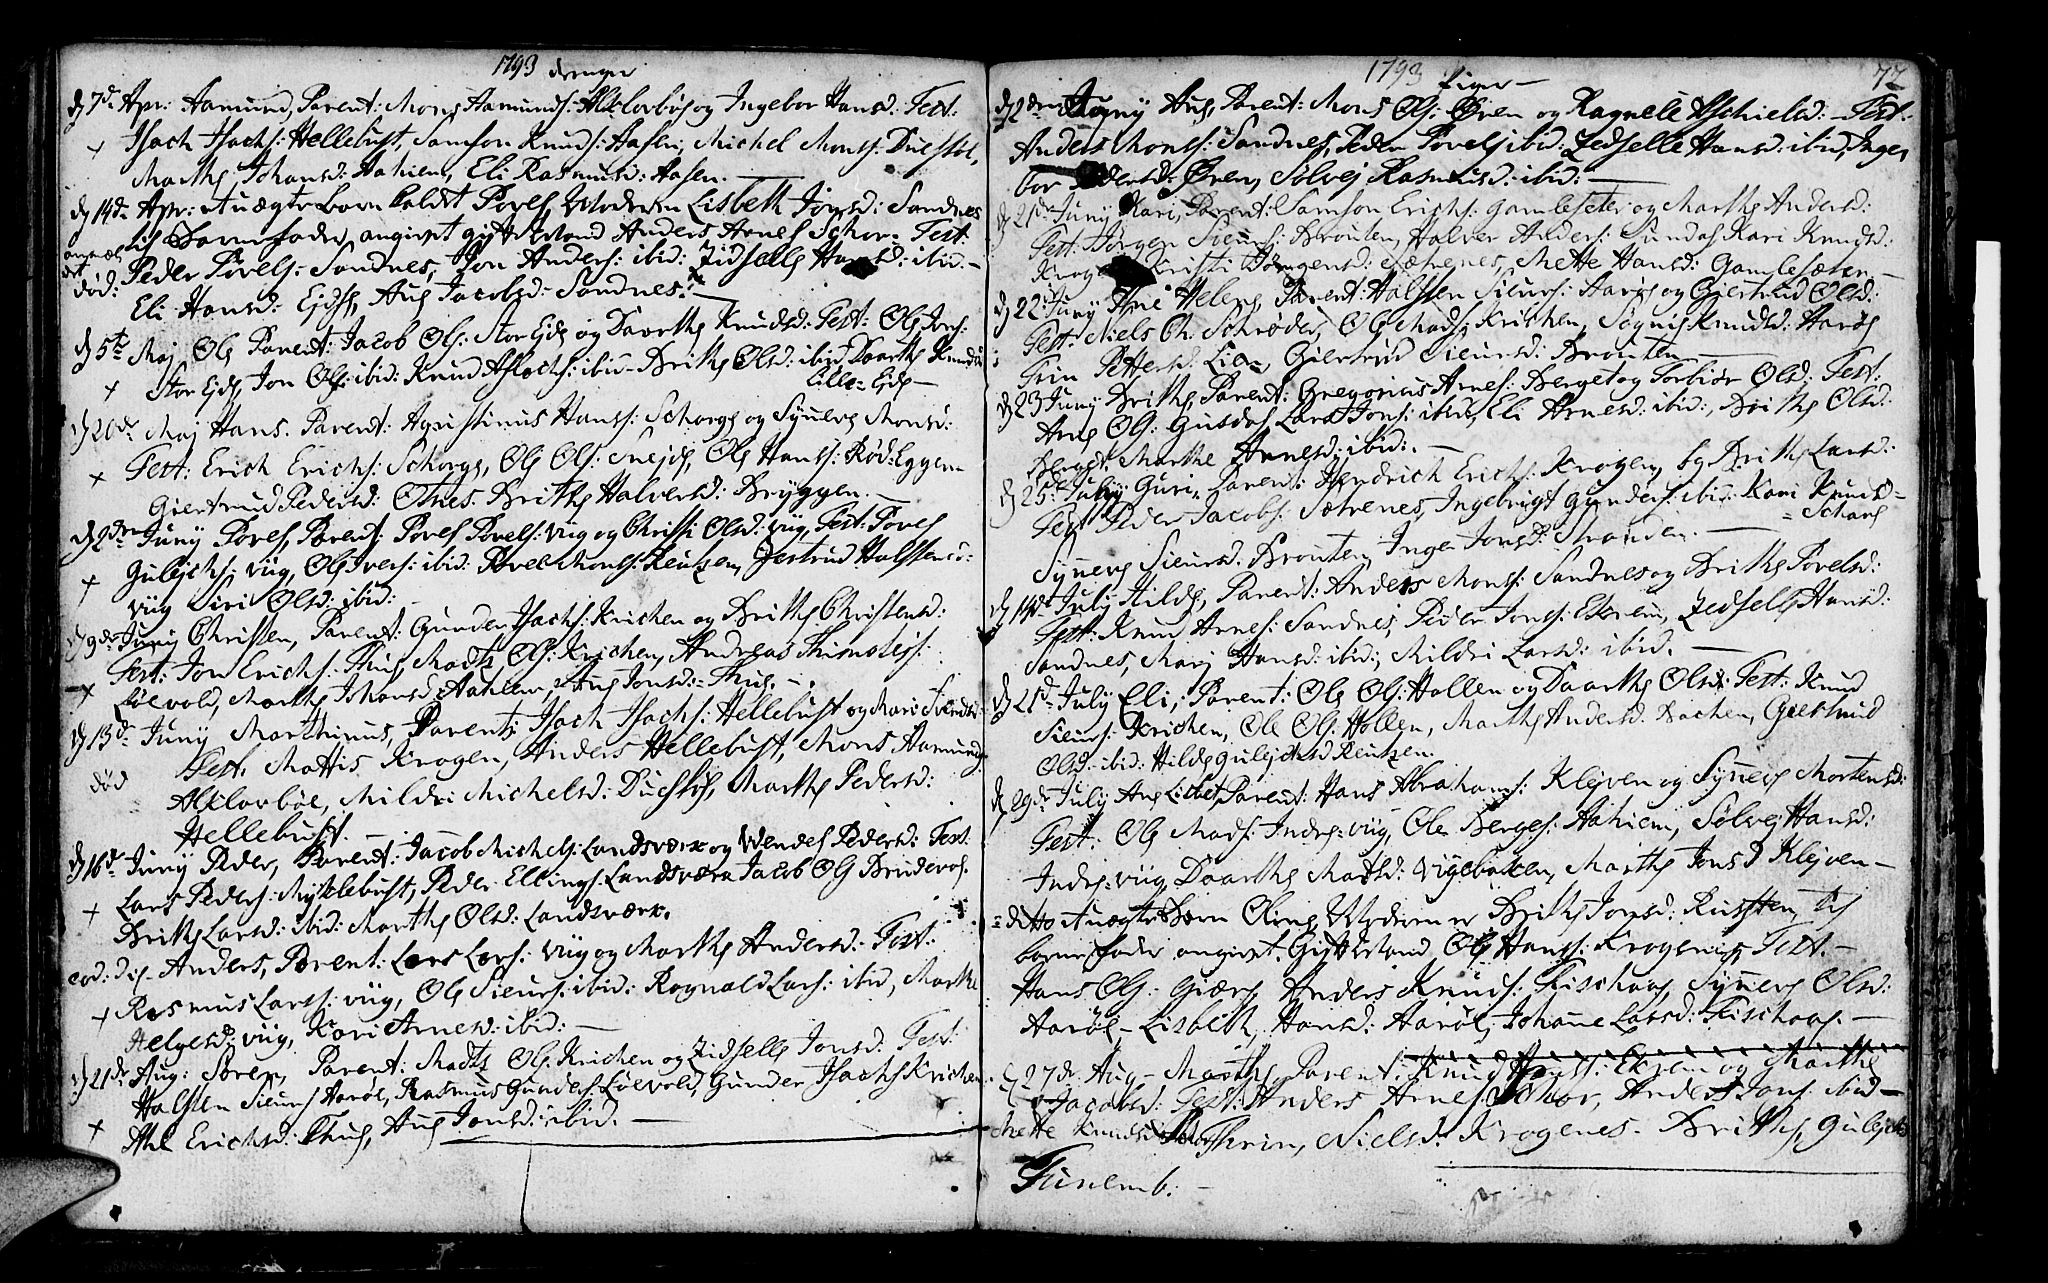 1793 drenge
d 7de Apr: Aamund, Parent: Mons Aamunds: Alklovbøe og Ingebor Hansd: Test:
+ Isach Isachs: Hellebust, Samson Knuds: Hasen, Michel Mons: Dueskøl,
Marthe Johansd: Hahiem, Eli Rasmusd: Hasen.
d 14de Apr: et uægte barn kaldet Povel, Moderen Lisbeth Jonsd: Sandnes
til Barnefader angivet gift Mand Anders Arnes Schor. Test:
død: Peder Povels: Sandnes, Jon Anders: ibid: Zidselle Hansd: ibid.
Eli Hansd: Ejde, Ane Jacobsd: Sandnes.
d 5te Maj, Ole Parent: Jacob Ols: Stor Ejde og Daarthe Knudsd: Test: Ole Jons:
+ Stor Ejde, Jon Ols: ibid: Knud Aslachs: ibid Brithe Olsd: ibid, Daarthe Knudsd:
Lille-Ejde
d 20de Maj Hans. Parent: Agustinus Hans: Schorge og Synneve Monsd:
+ Test: Erich Erichs: Schorge, Ole Ols: Snejde, Ole Hans: Rød-Eggen
Giertrud Pedersd: Otnes. Brithe Halversd: Bryggen.
d 2den Juny Povel, Parent: Povel Povels: viig og Christi Olsd: viig, Test: Povel
+ Gulichs: viig, Ole Ivers: ibid: Povel Mons: Reutzen, Jertrud Halstensd:
viig Siri Olsd: ibid:
d 9de Juny Christen, Parent: Gunder Isachs: Krichen og Brithe Christensd:
+ Test: Jon Erichs: Thue, Mads Ols: Krichen, Andreas Thimoteis:
Løevold, Marthe Johansd: Aahiem, Ane Jonsd: Thue.
d 13de Juny Marthinus, Parent: Isach Isachs: Hellebust og Mari Svendsd:
død Test. Mattis Krogen, Anders Hellebust, Mons Aamunds
Alklovbøe, Mildri Michelsd: Dueskøl, Marthe Pedersd:
Hellebust.
d 16de Juny Peder, Parent: Jacob Michels: Landsværk og Wendel Pedersd: Test:
+ Lars Peders: Myklebust, Peder Ellings: Landsværk Jacob Ols Brudevol
Brithe Larsd: ibid: Marthe Olsd: Landsværk.
eod: die Anders, Parent: Lars Lars: viig og Marthe Andersd: Test:
+ Rasmus Lars: viig, Ole Sieurs: ibid: Rognald Lars: ibid, Marthe
Helgesd: viig, Kari Arnesd: ibid:
d 21de Aug: Søren, Parent: Mads Ols: Krichen og Zidselle Jonsd: Test:
Halsten Sieurs Harøe, Rasmus Gunders: Løevold, Gunder Isachs Krichen
+ Ane Erichsd: Thue, Ane Jonsd: ibid.
1793 Piger 72
d 2den Juny Ane, Parent: Mons Ols: Øren og Ragnele Aschielsd: Test:
Anders Mons: Sandnes, Peder Povels ibid: Zedselle Hansd: ibid, Inge-
bor Pedersd: Øren, Solvej Rasmusd: ibid:
d 21de Juny Kari, Parent: Samson Erichs: Gamleseter og Marthe Andersd:
Test: Jørgen Sieurs: Brouten, Halver Anders: Sundal Kari Knudsd:
Kristi Jørgensd: Sætrenes, Mette Hansd: Gamlesæter
d 22 Juny Ane Helene Parent: Halsten Sieurs: Harøe og Giertrud Olsd:
Test: Niels Ch. Schrøder, Ole Mads: Krichen, Sognis Knudsd: Harøe
Trin Pettersd: Lien Giertrud Sieursd: Brouten
d 23 Juny Brithe, Parent: Gregorius Arnes: Berget og Torbiør Olsd: Test:
Arne Ols: Gusdal, Lars Jons: ibid, Eli Arnesd: ibid:, Brithe Olsd:
Berget, Marthe Arnesd: ibid:
d 25 July Guri, Parent: Hendrich Erichs: Krogen, og Brithe Larsd:
Test Peder Jacobs: Sætrenes, Ingebrigt Gunders: ibid: Kari Knudsd=
= Schare
Synneve Sieursd: Brouten, Inger Jonsd: Stranden.
d 14de July Hilde, Parent: Anders Mons: Sandnes og Brithe Povelsd:
Test: Knud Arnes: Sandnes, Peder Jons: Ekrem, Zedselle Hansd:
Sandnes, Marj Hansd: ibid:, Mildri Larsd: ibid.
d 21de July Eli, Parent: Ole Ols: Hollen og Daarthe Olsd: Test: Knud
Sieurs: Krichen, Ole Ols: Hollen, Marthe Andersd: Bachen, Giertrud
Olsd: ibid: Hilde Gulichsd Reutzen.
d 29de July Ane Lisbet Parent: Hans Abrahams: Klejven og Synneve Mortensd:
Test: Ole Mads: Indre-viig, Ole Berges: Aahiem, Solvej Hansd:
Indre-viig, Daarthe Madsd: Vigebaken, Marthe Jonsd Klejven
ditto et uægte Børn Oline, Moderen er Brithe Jonsd: Russten, til
barnefader angivet Gift Mand Ole Hans: Krogenes, Test.
Hans Ols: Giære, Anders Knuds: Fischaae, Synneve Olsd:
Harøe, Lisbeth Hansd: Harøe, Johanne Larsd: Fischaae.
d 27de Aug Marthe, Parent: Knud Hans: Ekrem og Marthe
Jacobsd: Test: Anders Arnes: Schor, Anders Jons: ibid
Mette Knudsd Schor Thrin, Nielsd: Krogenes. Brithe, Gulichsd
Furemb: